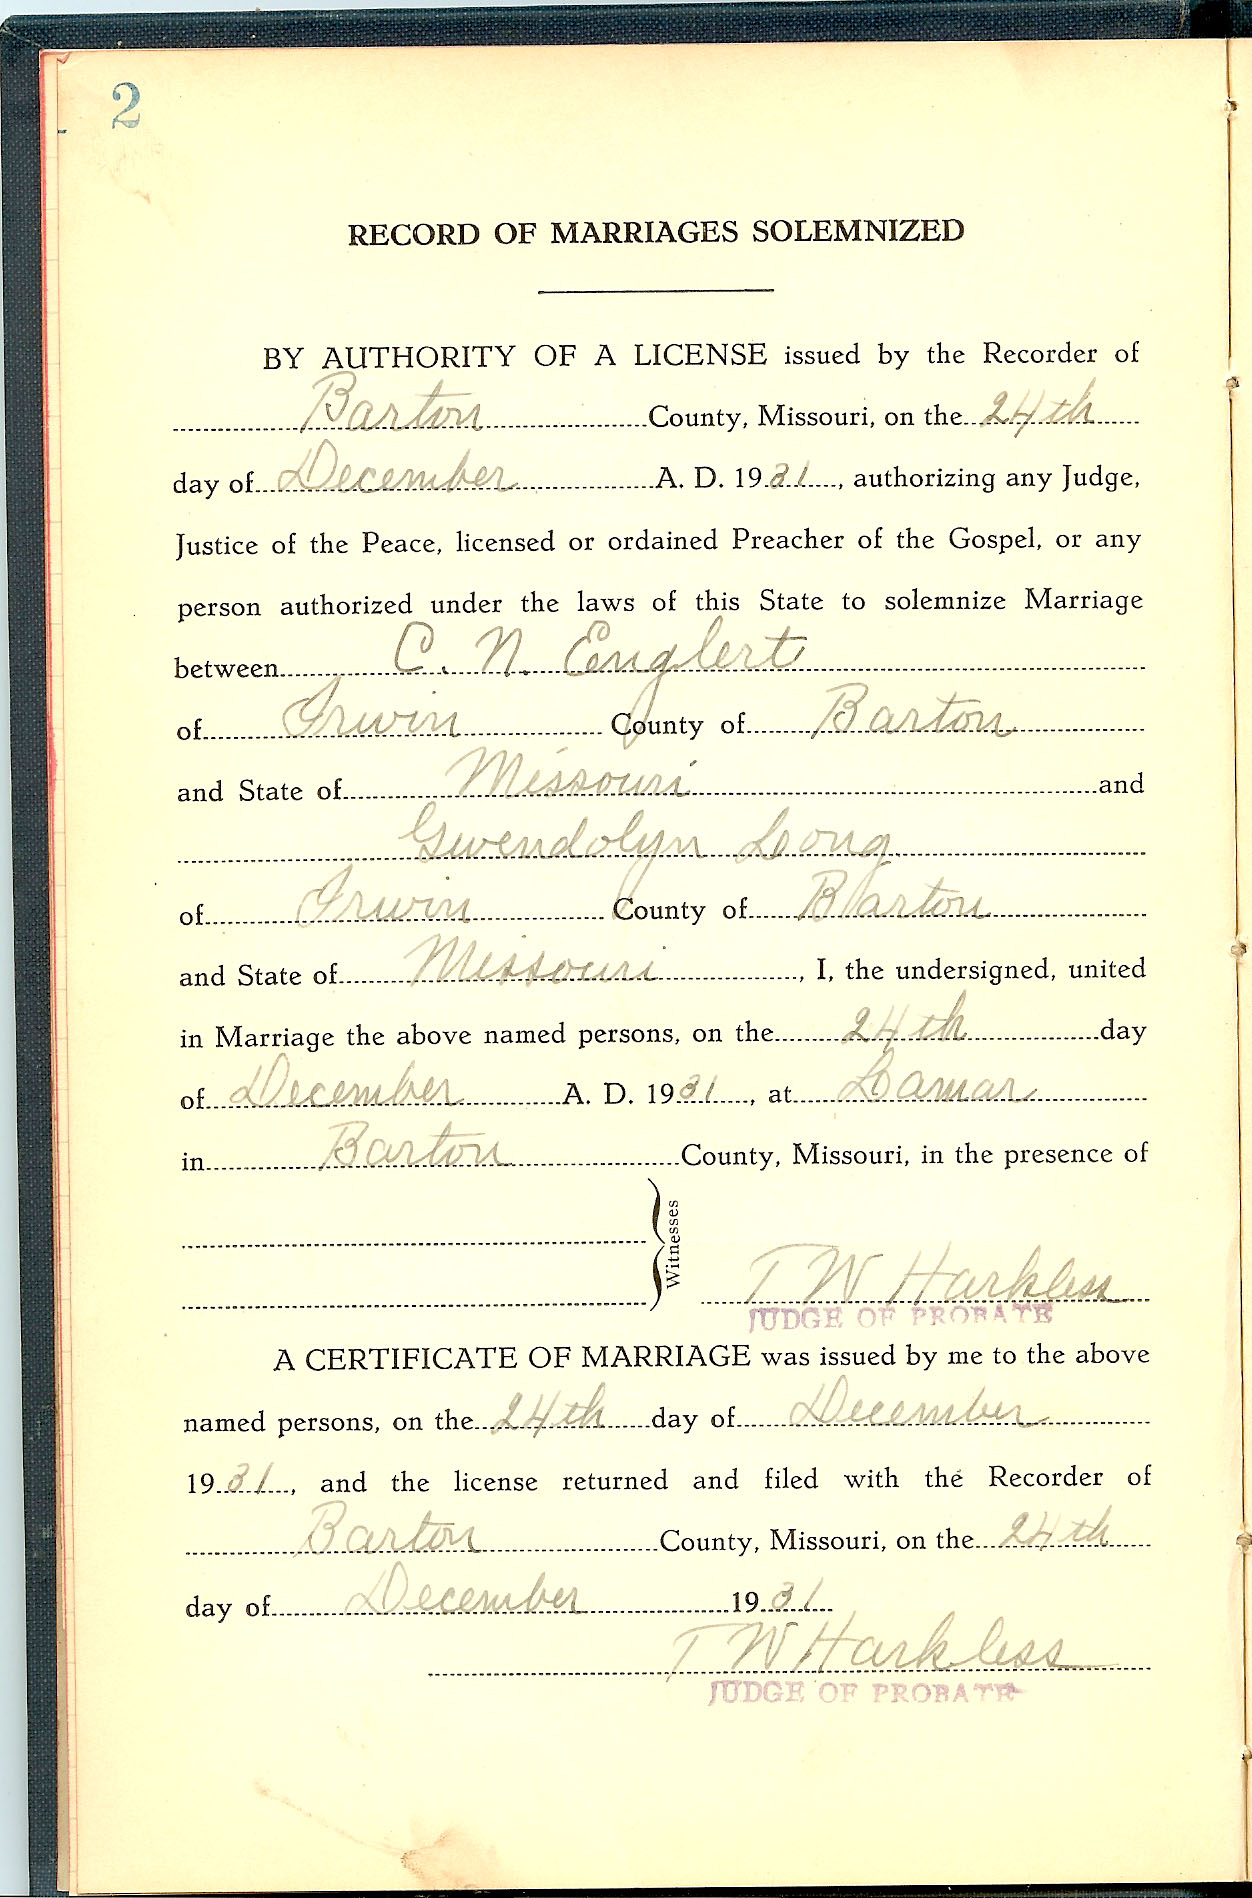 2
RECORD OF MARRIAGES SOLEMNIZED
BY AUTHORITY OF A LICENSE issued by the Recorder of
Barton County, Missouri, on the 24th
day of December A. D. 1931, authorizing any Judge,
Justice of the Peace, licensed or ordained Preacher of the Gospel, or any
person authorized under the laws of this State to solemnize Marriage
between C. N. Englert
of Irwin County of Barton
and State of Missouri and
Gwendolyn Long
of Irwin County of Barton
and State of Missouri, I, the undersigned, united
in Marriage the above named persons, on the 24th day
of December A. D. 1931, at Lamar
in Barton County, Missouri, in the presence of
Witnesses
T W Harkless
JUDGE OF PROBATE
A CERTIFICATE OF MARRIAGE was issued by me to the above
named persons, on the 24th day of December
1931, and the license returned and filed with the Recorder of
Barton County, Missouri, on the 24th
day of December 1931
T W Harkless
JUDGE OF PROBATE